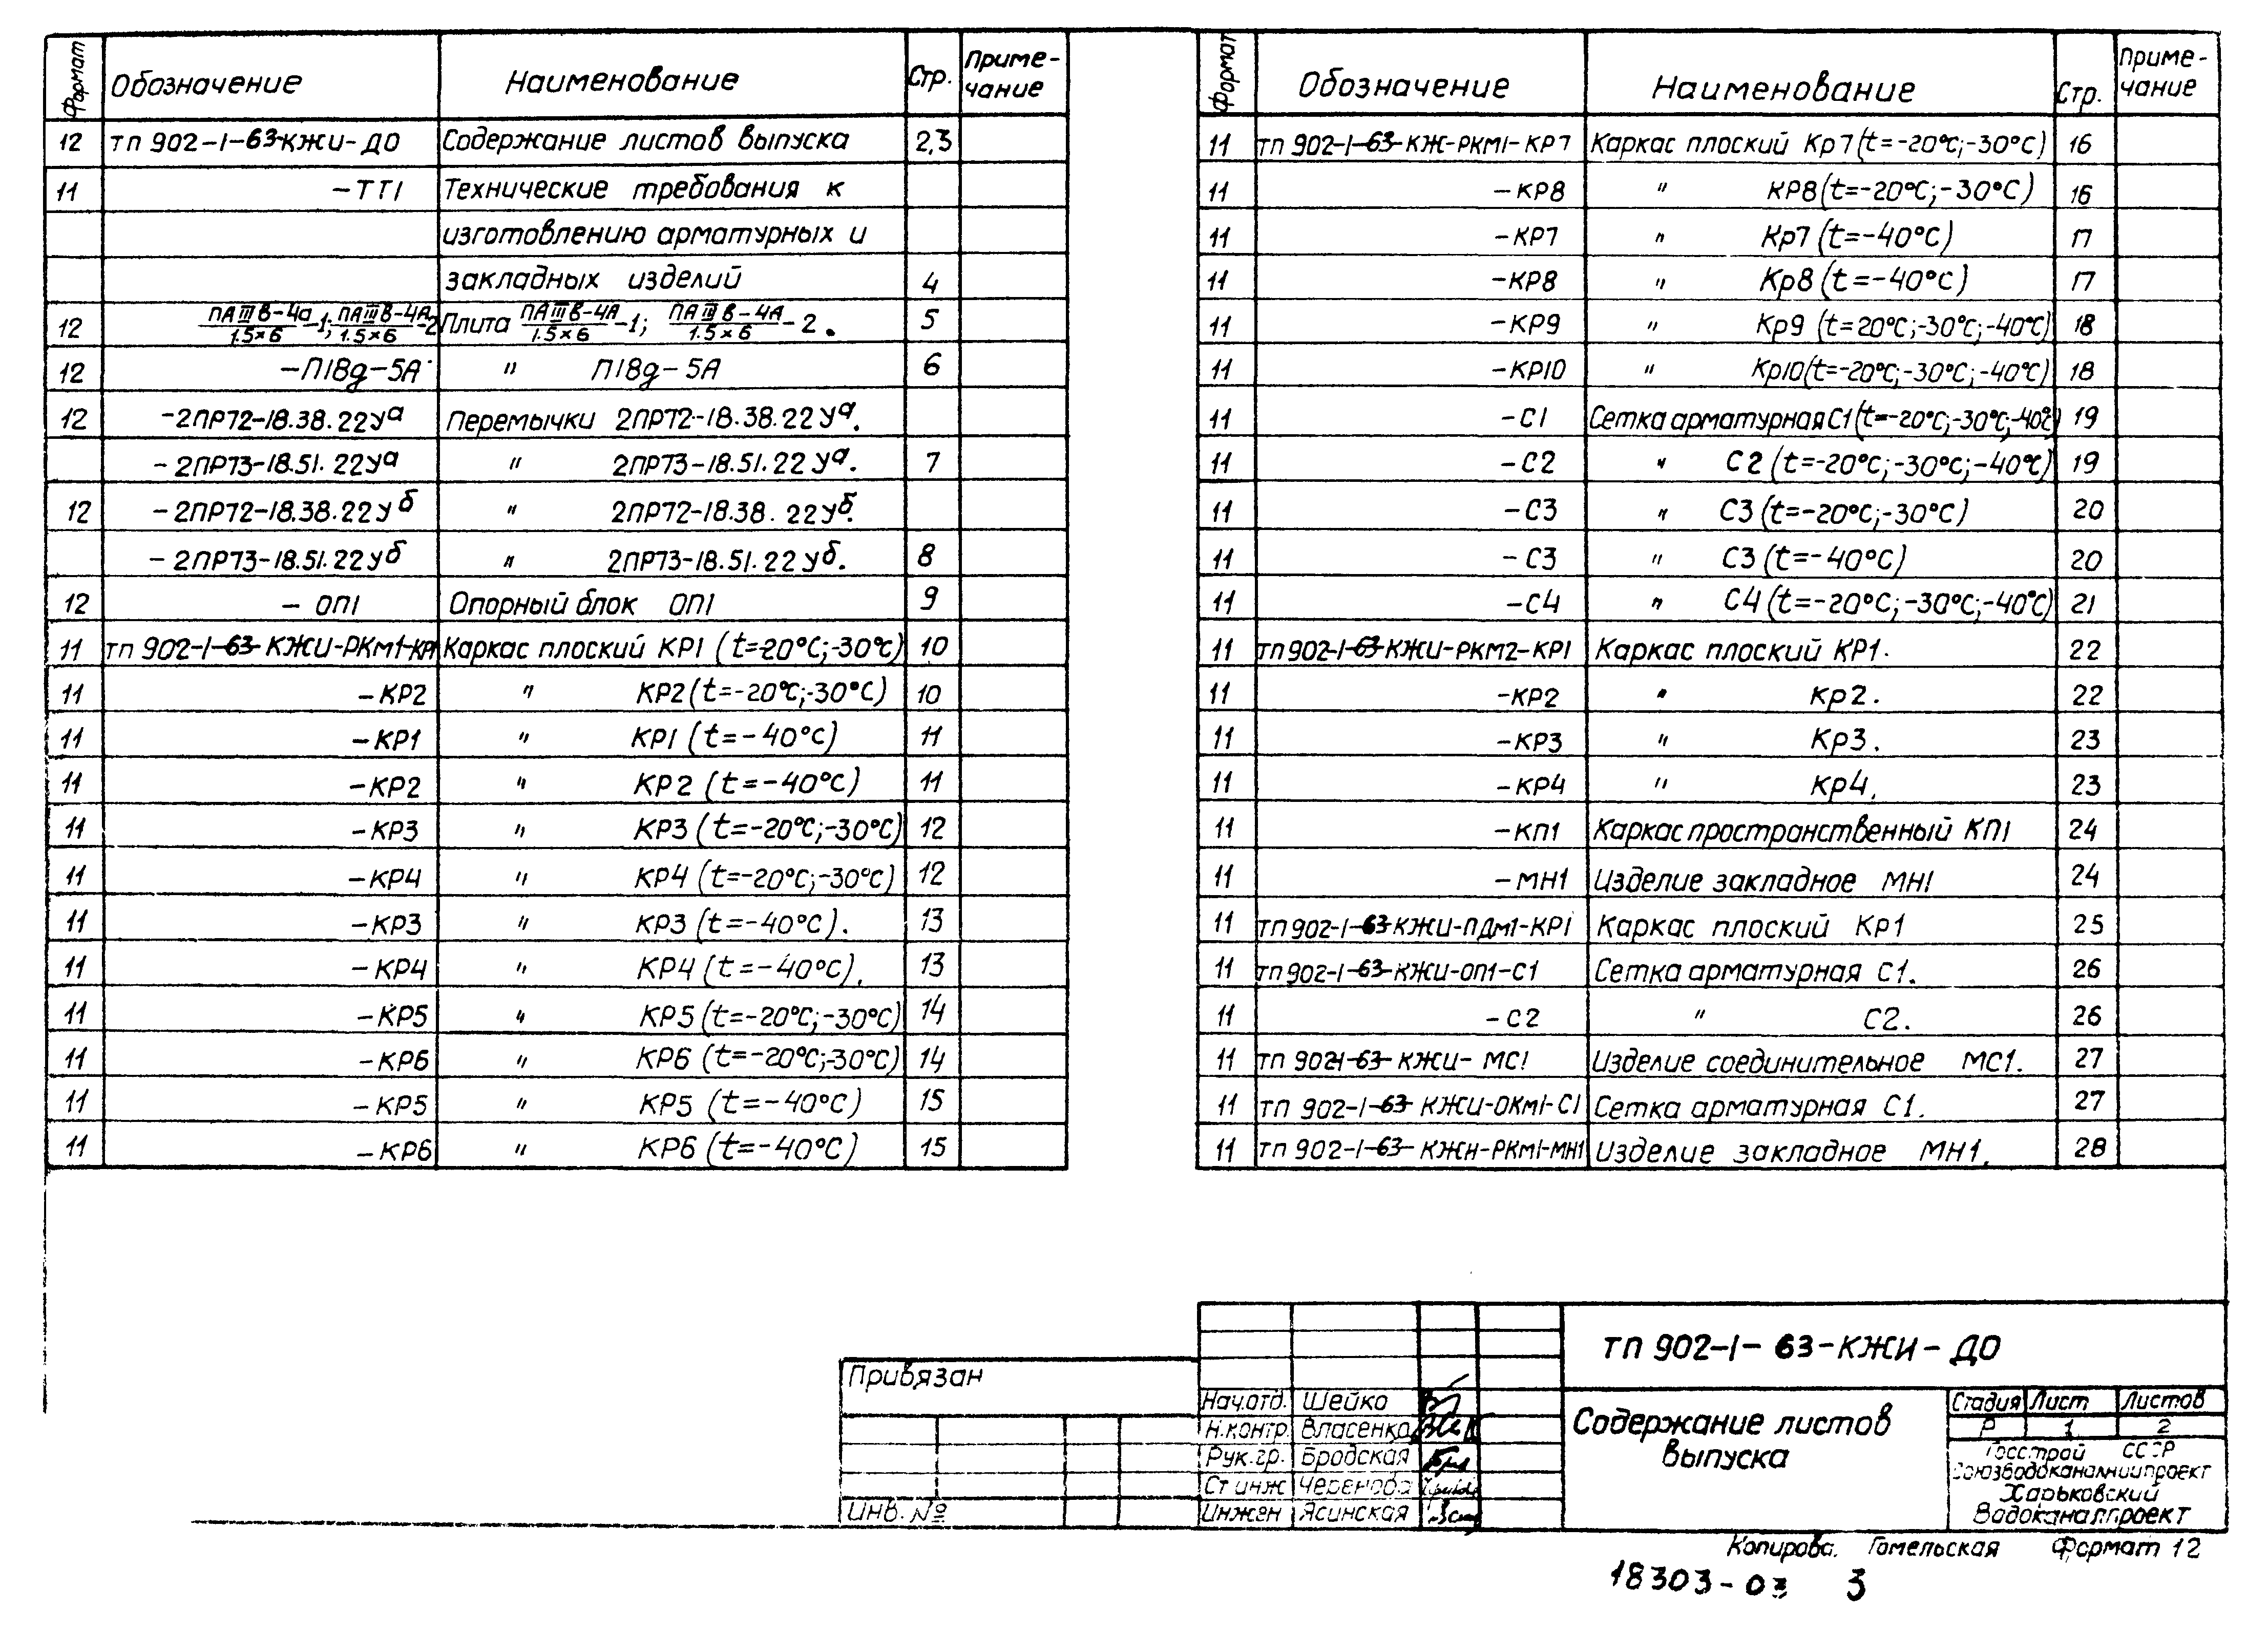 Формат Обозначение Наименование Стр. Приме-
чание
12 тп 902-1-63-КЖИ-ДО Содержание листов выпуска 2,3
11 -ТТ1 Технические требования к
изготовлению арматурных и
закладных изделий 4
12 ПАШВ-4а/1.5×6-1; ПАШВ-4А/1.5×6-2 Плита ПАШВ-4А/1.5×6-1; ПАШВ-4А/1.5×6-2. 5
12 -П18д-5А " П18д-5А 6
12 -2ПР72-18.38.22Уа Перемычки 2ПР72-18.38.22Уа.
-2ПР73-18.51.22Уа " 2ПР73-18.51.22Уа. 7
12 -2ПР72-18.38.22Уб " 2ПР72-18.38.22Уб.
-2ПР73-18.51.22Уб " 2ПР73-18.51.22Уб. 8
12 - ОП1 Опорный блок ОП1 9
11 тп 902-1-63-КЖИ-РКм1-КР1 Каркас плоский КР1 (t=-20°С;-30°С) 10
11 -КР2 " КР2(t=-20°С;-30°С) 10
11 -КР1 " КР1 (t=-40°С) 11
11 -КР2 " КР2 (t=-40°С) 11
11 -КР3 " КР3 (t=-20°С;-30°С) 12
11 -КР4 " КР4 (t=-20°С;-30°С) 12
11 -КР3 " КР3 (t=-40°С). 13
11 -КР4 " КР4 (t=-40°С). 13
11 -КР5 " КР5 (t=-20°С;-30°С) 14
11 -КР6 " КР6 (t=-20°С;-30°С) 14
11 -КР5 " КР5 (t=-40°С) 15
11 -КР6 " КР6 (t=-40°С) 15
Формат Обозначение Наименование Стр. Приме-
чание
11 тп 902-1-63-КЖ-РКМ1-КР7 Каркас плоский Кр7(t=-20°С;-30°С) 16
11 -КР8 " КР8(t=-20°С;-30°С) 16
11 -КР7 " Кр7 (t=-40°С) 17
11 -КР8 " Кр8 (t=-40°С) 17
11 -КР9 " Кр9 (t=20°С;-30°С;-40°С) 18
11 -КР10 " Кр10(t=-20°С;-30°С;-40°С) 18
11 -С1 Сетка арматурная С1 (t=-20°С;-30°С;-40°С) 19
11 -С2 " С2 (t=-20°С;-30°С;-40°С) 19
11 -С3 " С3 (t=-20°С;-30°С) 20
11 -С3 " С3 (t=-40°С) 20
11 -С4 " С4 (t=-20°С;-30°С;-40°С) 21
11 тп902-1-63-КЖИ-РКМ2-КР1 Каркас плоский КР1. 22
11 -КР2 " Кр2. 22
11 -КР3 " Кр3. 23
11 -КР4 " Кр4. 23
11 -КП1 Каркас пространственный КП1 24
11 -МН1 Изделие закладное МН1 24
11 тп902-1-63-КЖИ-ПДм1-КР1 Каркас плоский Кр1 25
11 тп902-1-63-КЖИ-ОП1-С1 Сетка арматурная С1. 26
11 -С2 " С2. 26
11 тп 902-1-63-КЖИ-МС1 Изделие соединительное МС1. 27
11 тп 902-1-63-КЖИ-ОКм1-С1 Сетка арматурная С1. 27
11 тп 902-1-63-КЖИ-РКм1-МН1 Изделие закладное МН1. 28
Привязан
Инв. №
Нач.отд. Шейко
Н.контр. Власенко
Рук.гр. Бродская
Ст инж
Инжен Ясинская
тп 902-1-63-КЖИ-ДО
Содержание листов
выпуска
Стадия Лист Листов
Р 1 2
Госстрой СССР
Союзводоканалниипроект
Харьковский
Водоканалпроект
Копирова. Гомельская Формат 12
18303-03 3